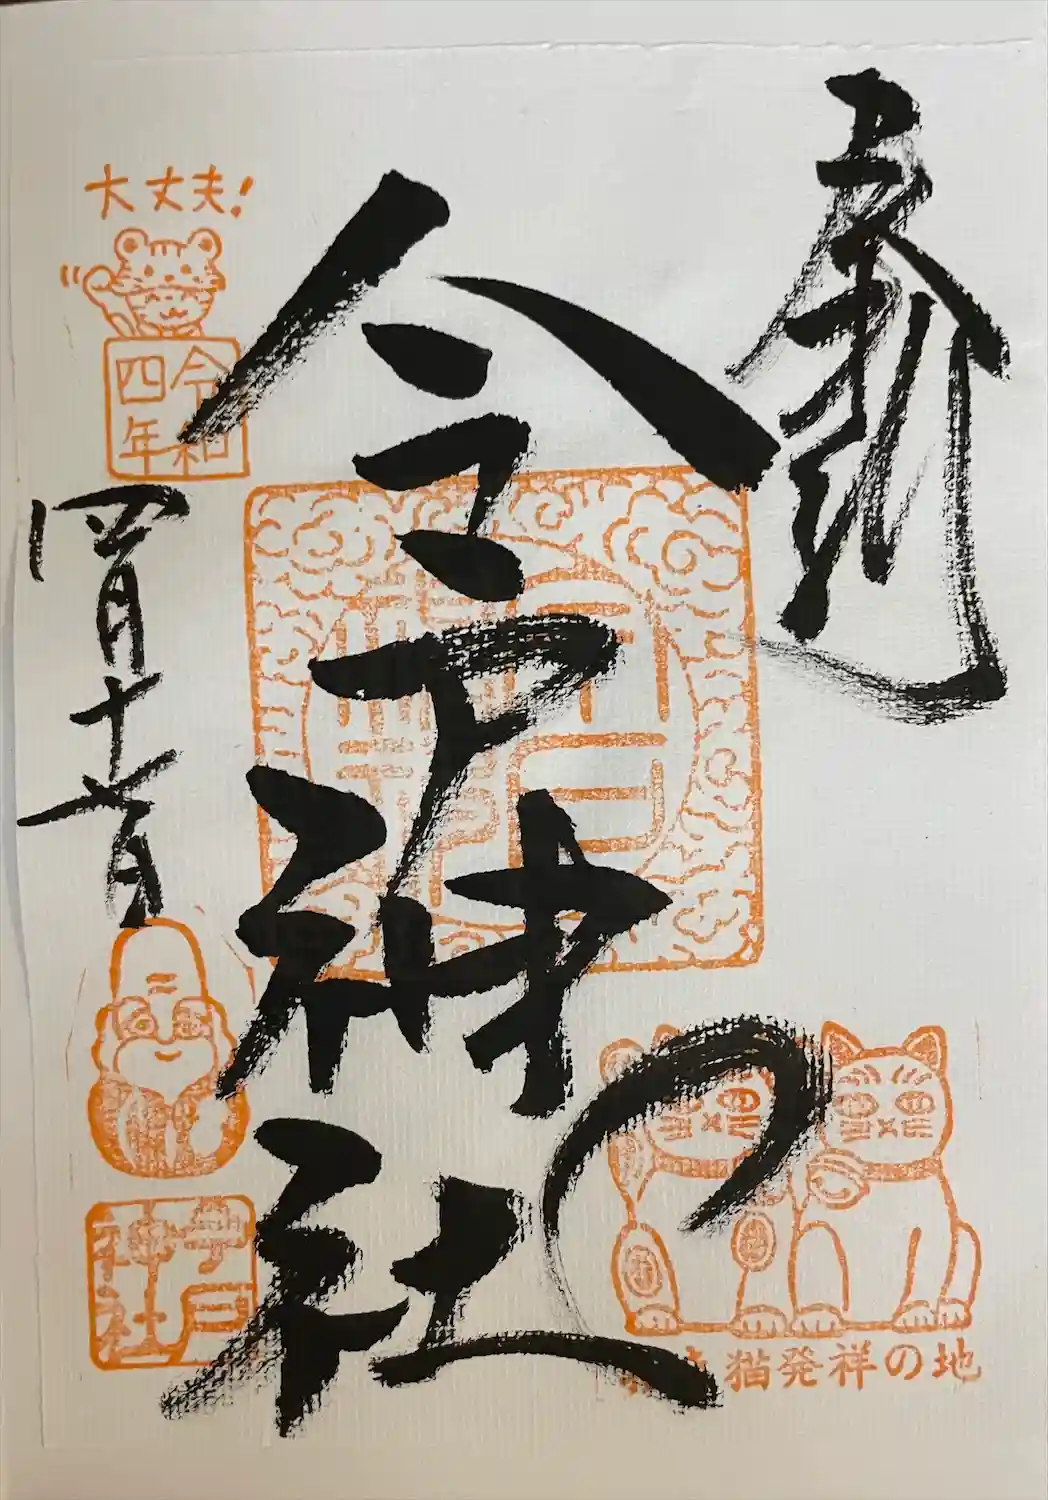 奉拝
今戸神社
大丈夫!
令和
四年
四月十六日
猫発祥の地
今戸
神社